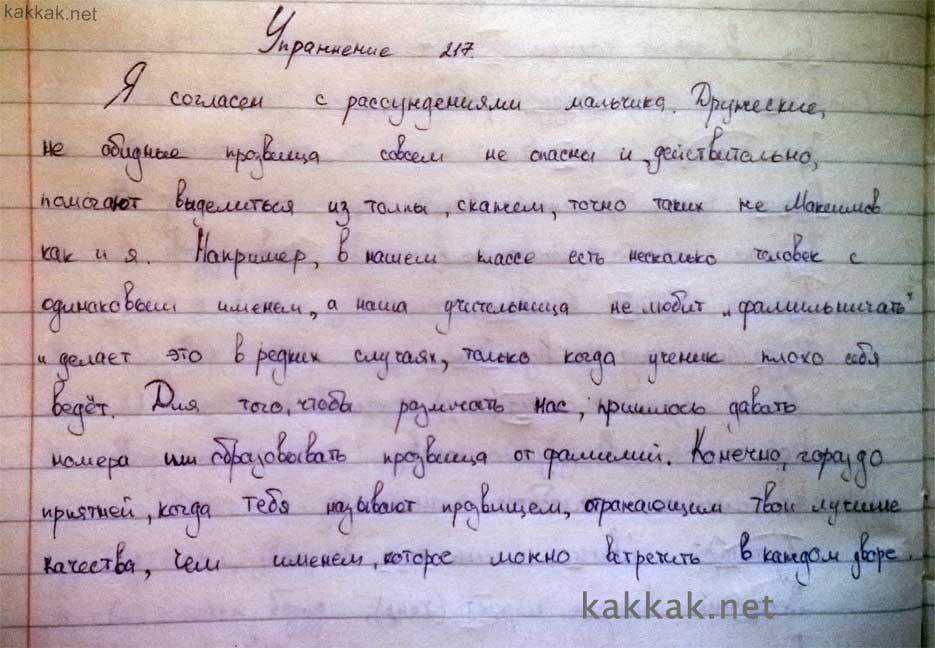 kakkak.net
Упражнение 217.
Я согласен с рассуждениями мальчика. Дружеские,
не обидные прозвища совсем не опасны и, действительно,
помогают выделиться из толпы, скажем, точно таких же Максимов
как и я. Например, в нашем классе есть несколько человек с
одинаковым именем, а наша учительница не любит „фамильничать"
и делает это в редких случаях, только когда ученик плохо себя
ведёт. Для того, чтобы различать нас, пришлось давать
номера или образовывать прозвища от фамилий. Конечно, гораздо
приятней, когда тебя называют прозвищем, отражающим твои лучшие
качества, чем именем, которое можно встретить в каждом дворе.
kakkak.net